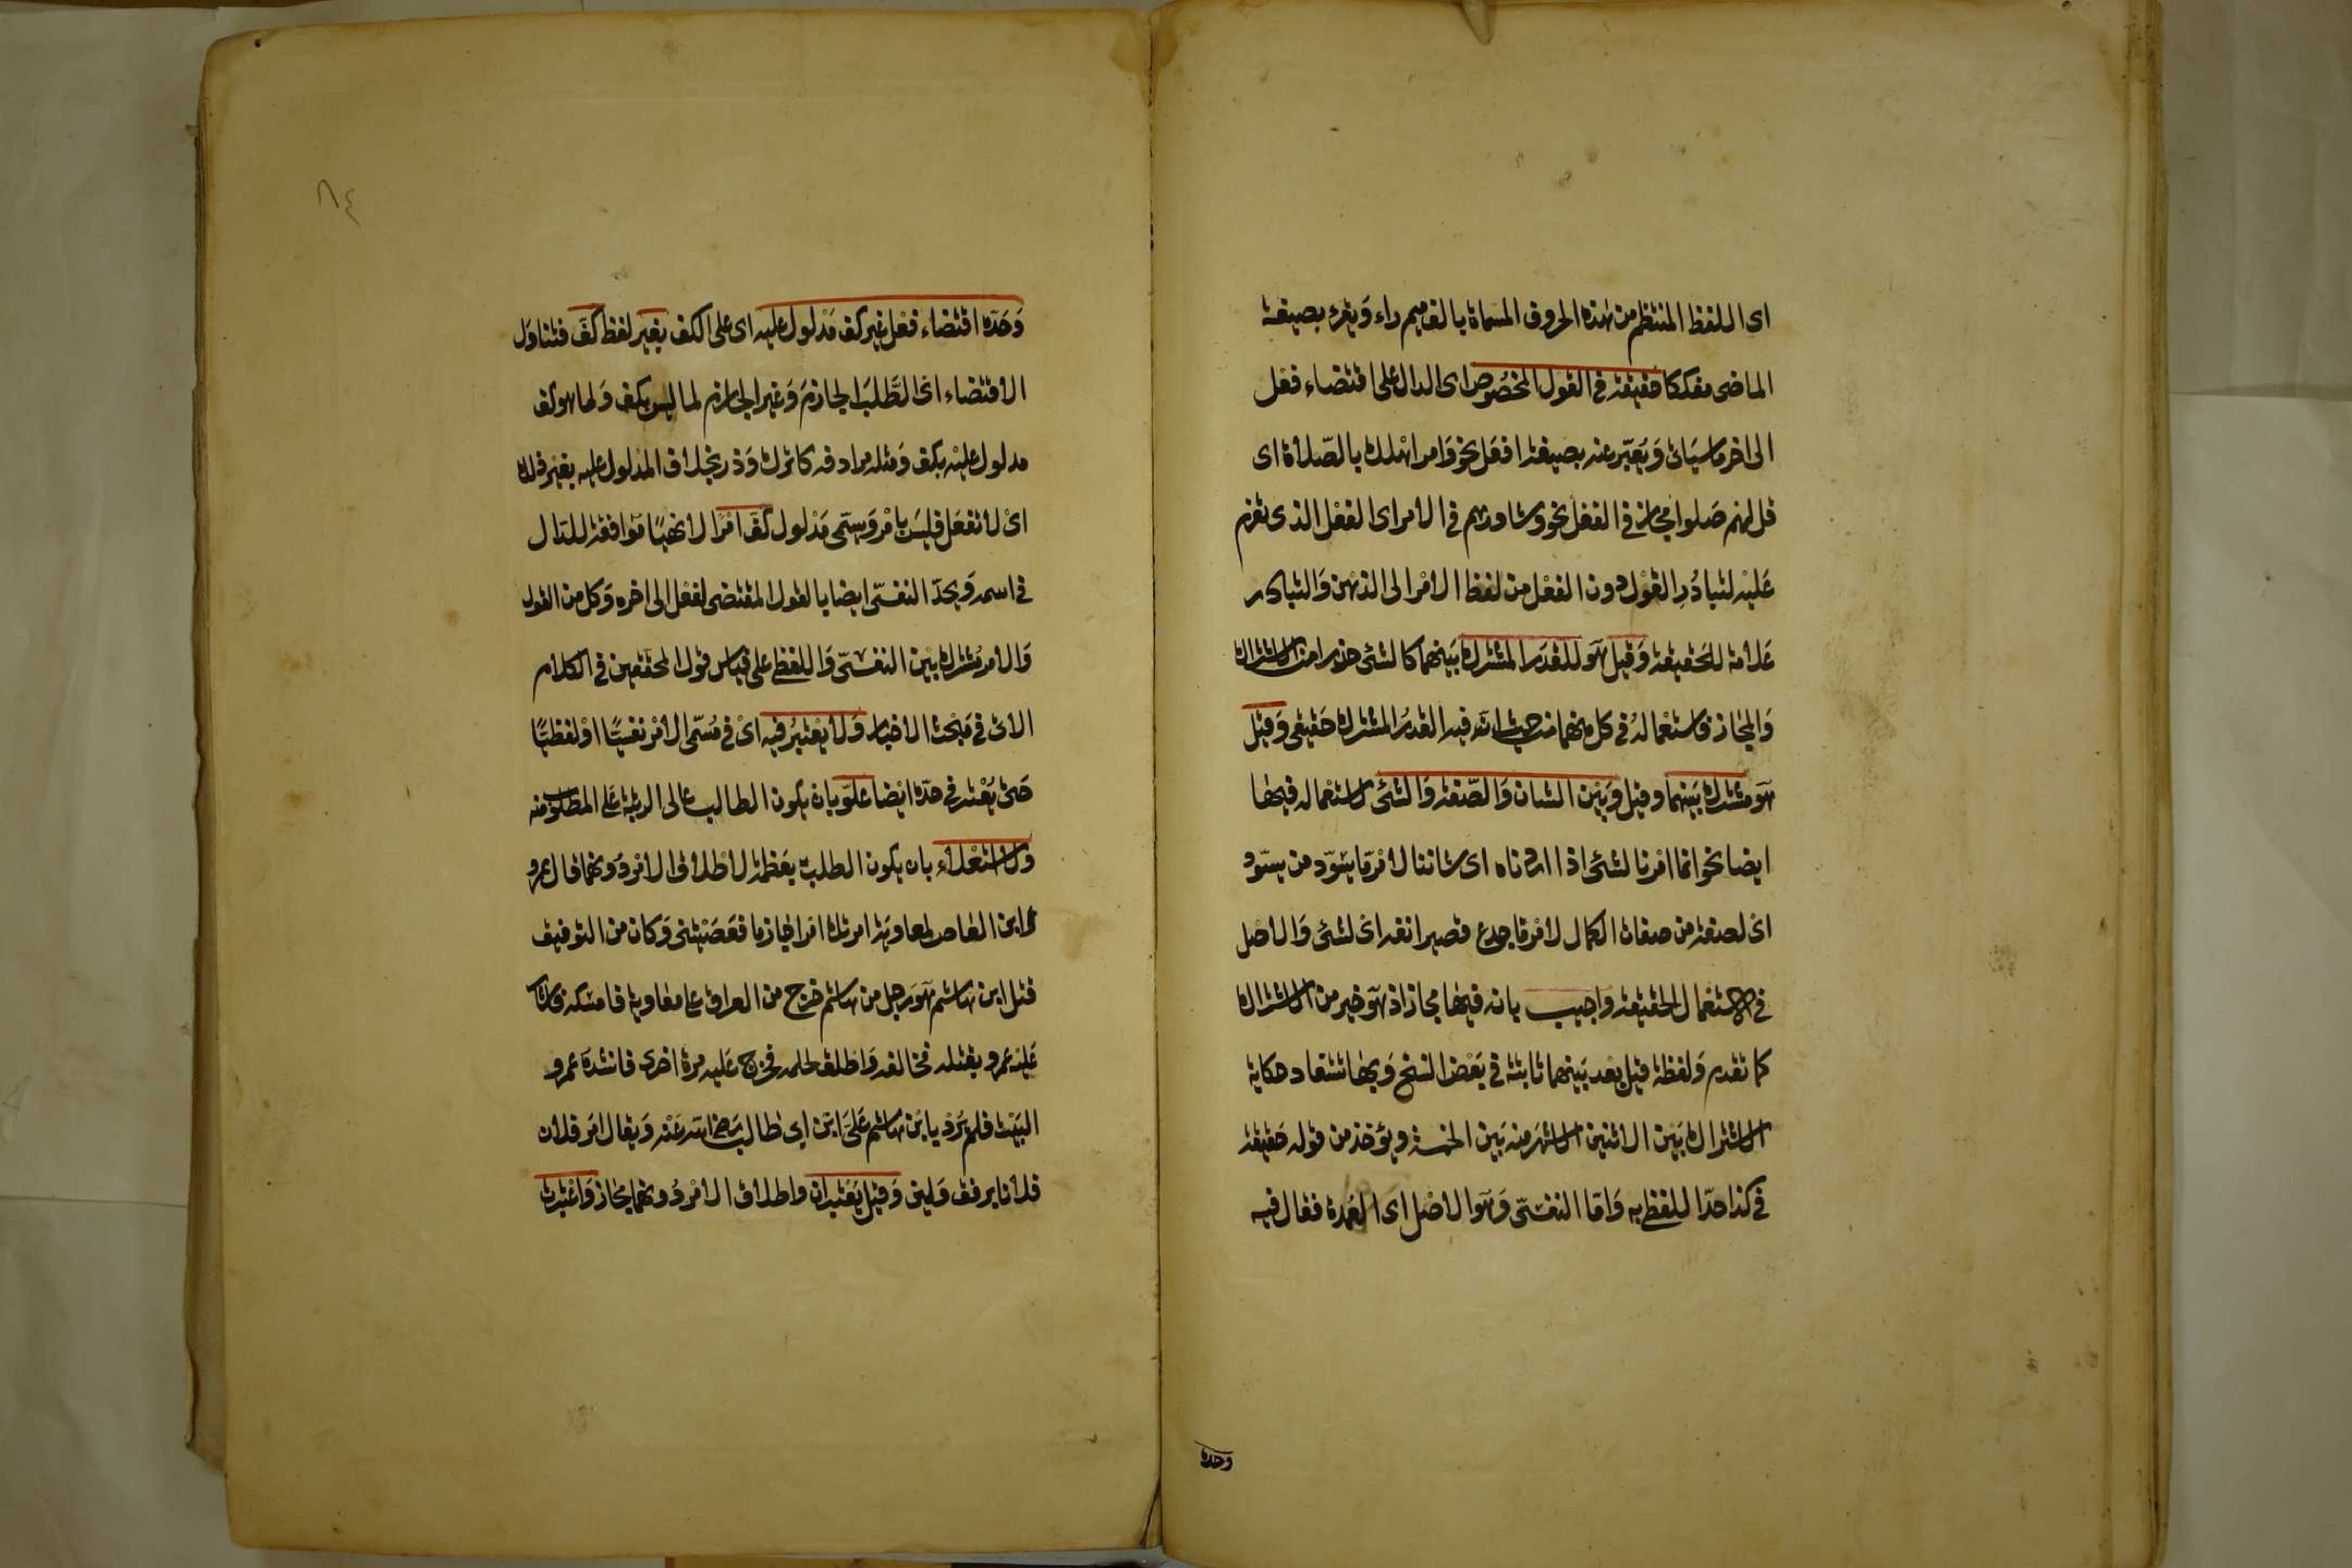 اى اللفظ المنتظم من هذه الحروف المسماة بالف ميم راء ويقرء بصيغة
الماضى مفككا حقيقة فى القول المخصوص اى الدال على اقتضاء فعل
الى اخر ما سياتى ويعبر عنه بصيغة افعل نحو وامر اهلك بالصلاة اى
قل لهم صلوا مجاز فى الفعل نحو وشاورهم فى الامر اى الفعل الذى تعزم
عليه لتبادر القول دون الفعل من لفظ الامر الى الذهن والتبادر
علامة للحقيقة وقيل هو للقدر المشترك بينهما كالشئ حذرا من الاشتراك
والمجاز فاستعماله فى كل منهما من حيث انه فيه القدر المشترك حقيقى وقيل
هو مشترك بينهما وقيل وبين الشان والصفة والشئ لاستعماله فيها
ايضا نحو انما امرنا لشئ اذا اردناه اى شاننا لامر ما يسود من يسود
اى لصفة من صفات الكمال لامر ما جدع قصير انفه اى لشئ والاصل
فى الاستعمال الحقيقة واجيب بانه فيها مجاز اذ هو خير من الاشتراك
كما تقدم ولفظة قيل بعد بينهما ثابتة فى بعض النسخ وبها تستفاد حكاية
الاشتراك بين الاثنين الاشهر منه بين الخمسة ويؤخذ من قوله حقيقة
فى كذا حد اللفظى به واما النفسى وهو الاصل اى العمدة فقال فيه
وحده
٨٤
وحده اقتضاء فعل غير كف مدلول عليه اى على الكف بغير لفظ كف فتناول
الاقتضاء اى الطلب الجازم وغير الجازم لما ليس بكف ولما هو كف
مدلول عليه بكف ومثله مرادفه كاترك وذر بخلاف المدلول عليه بغير ذلك
اى لا تفعل فليس بامر ويسمى مدلول كف امرا لا نهيا موافقة للدال
فى اسمه ويحد النفسى ايضا بالقول المقتضى لفعل الى اخره وكل من القول
والامر مشترك بين النفسى واللفظى على قياس قول المحققين فى الكلام
الاتى فى مبحث الاخبار ولا يعتبر فيه اى فى مسمى الامر نفسيا او لفظيا
حتى يعتبر فى حده ايضا علو بان يكون الطالب عالى الرتبة على المطلوب منه
ولا استعلاء بان يكون الطلب بعظمة لاطلاق الامر دونهما قال عمرو
ابن العاص لمعاوية امرتك امرا جازما فعصيتنى وكان من التوفيق
قتل ابن هاشم هو رجل من هاشم خرج من العراق على معاوية فامسكه فاشار
عليه عمرو بقتله فخالفه واطلقه لحلمه فخرج عليه مرة اخرى فانشده عمرو
البيت فلم يرد يا ابن هاشم على ابن ابى طالب رضى الله عنه ويقال امر فلان
فلانا برفق ولين وقيل يعتبران واطلاق الامر دونهما مجاز واعتبرت